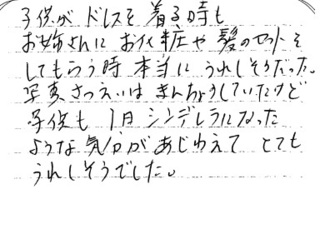 子供が ドレスを 着る時も
お姉さんに お化粧や 髪のセットを
してもらう時 本当に うれしそうだった。
写真さつえいは きんちょうしていたけど
子供も 1日 シンデレラになった
ような 気分が あじわえて とても
うれしそうでした。